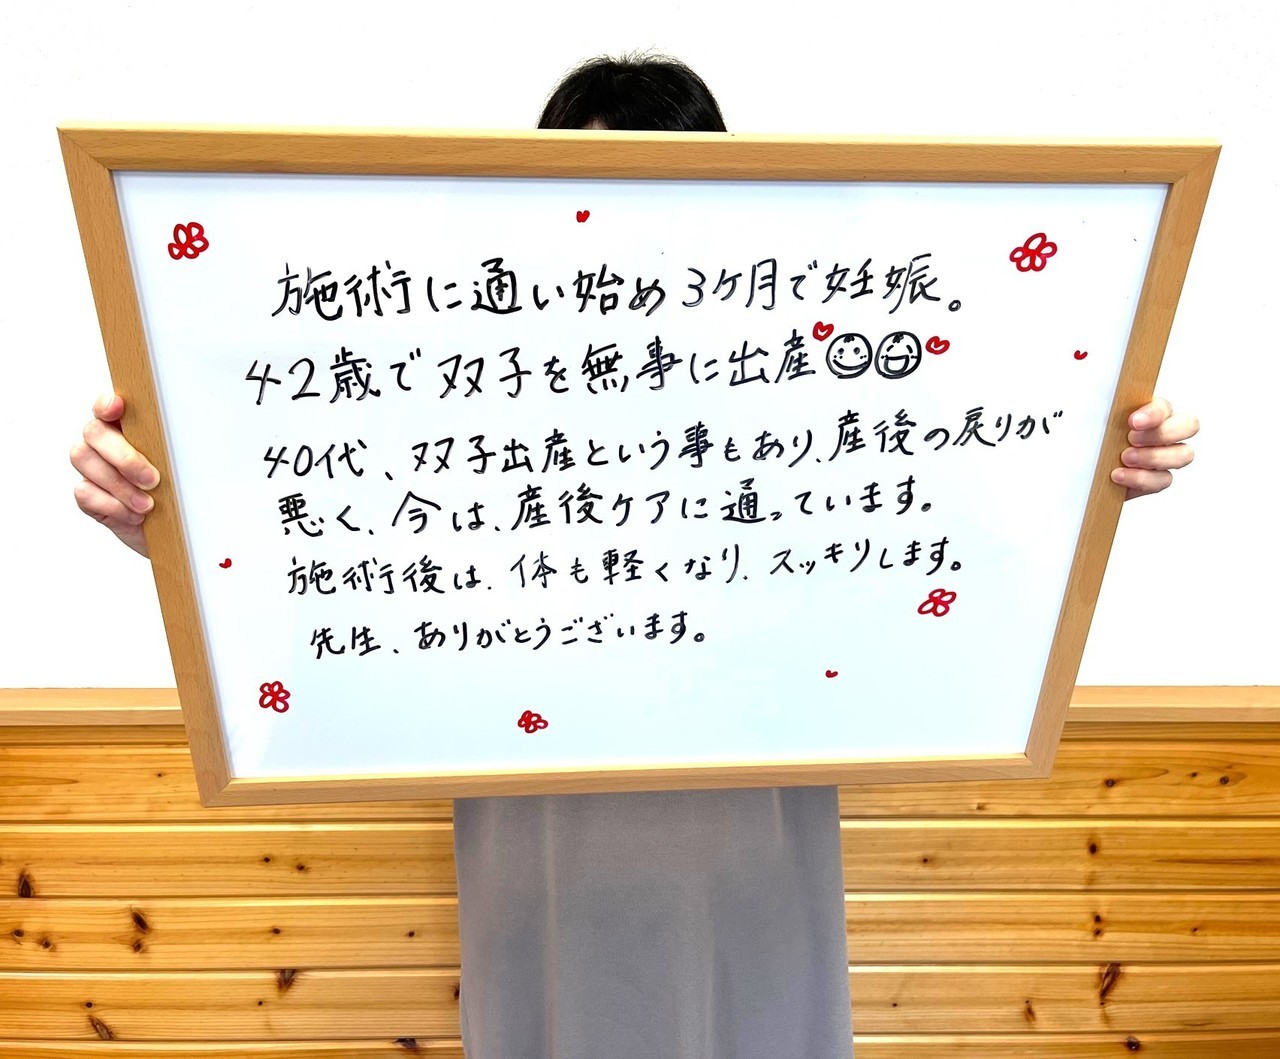 施術に通い始め3ケ月で妊娠。
42歳で双子を無事に出産
40代、双子出産という事もあり、産後の戻りが
悪く、今は、産後ケアに通っています。
施術後は、体も軽くなり、スッキリします。
先生、ありがとうございます。